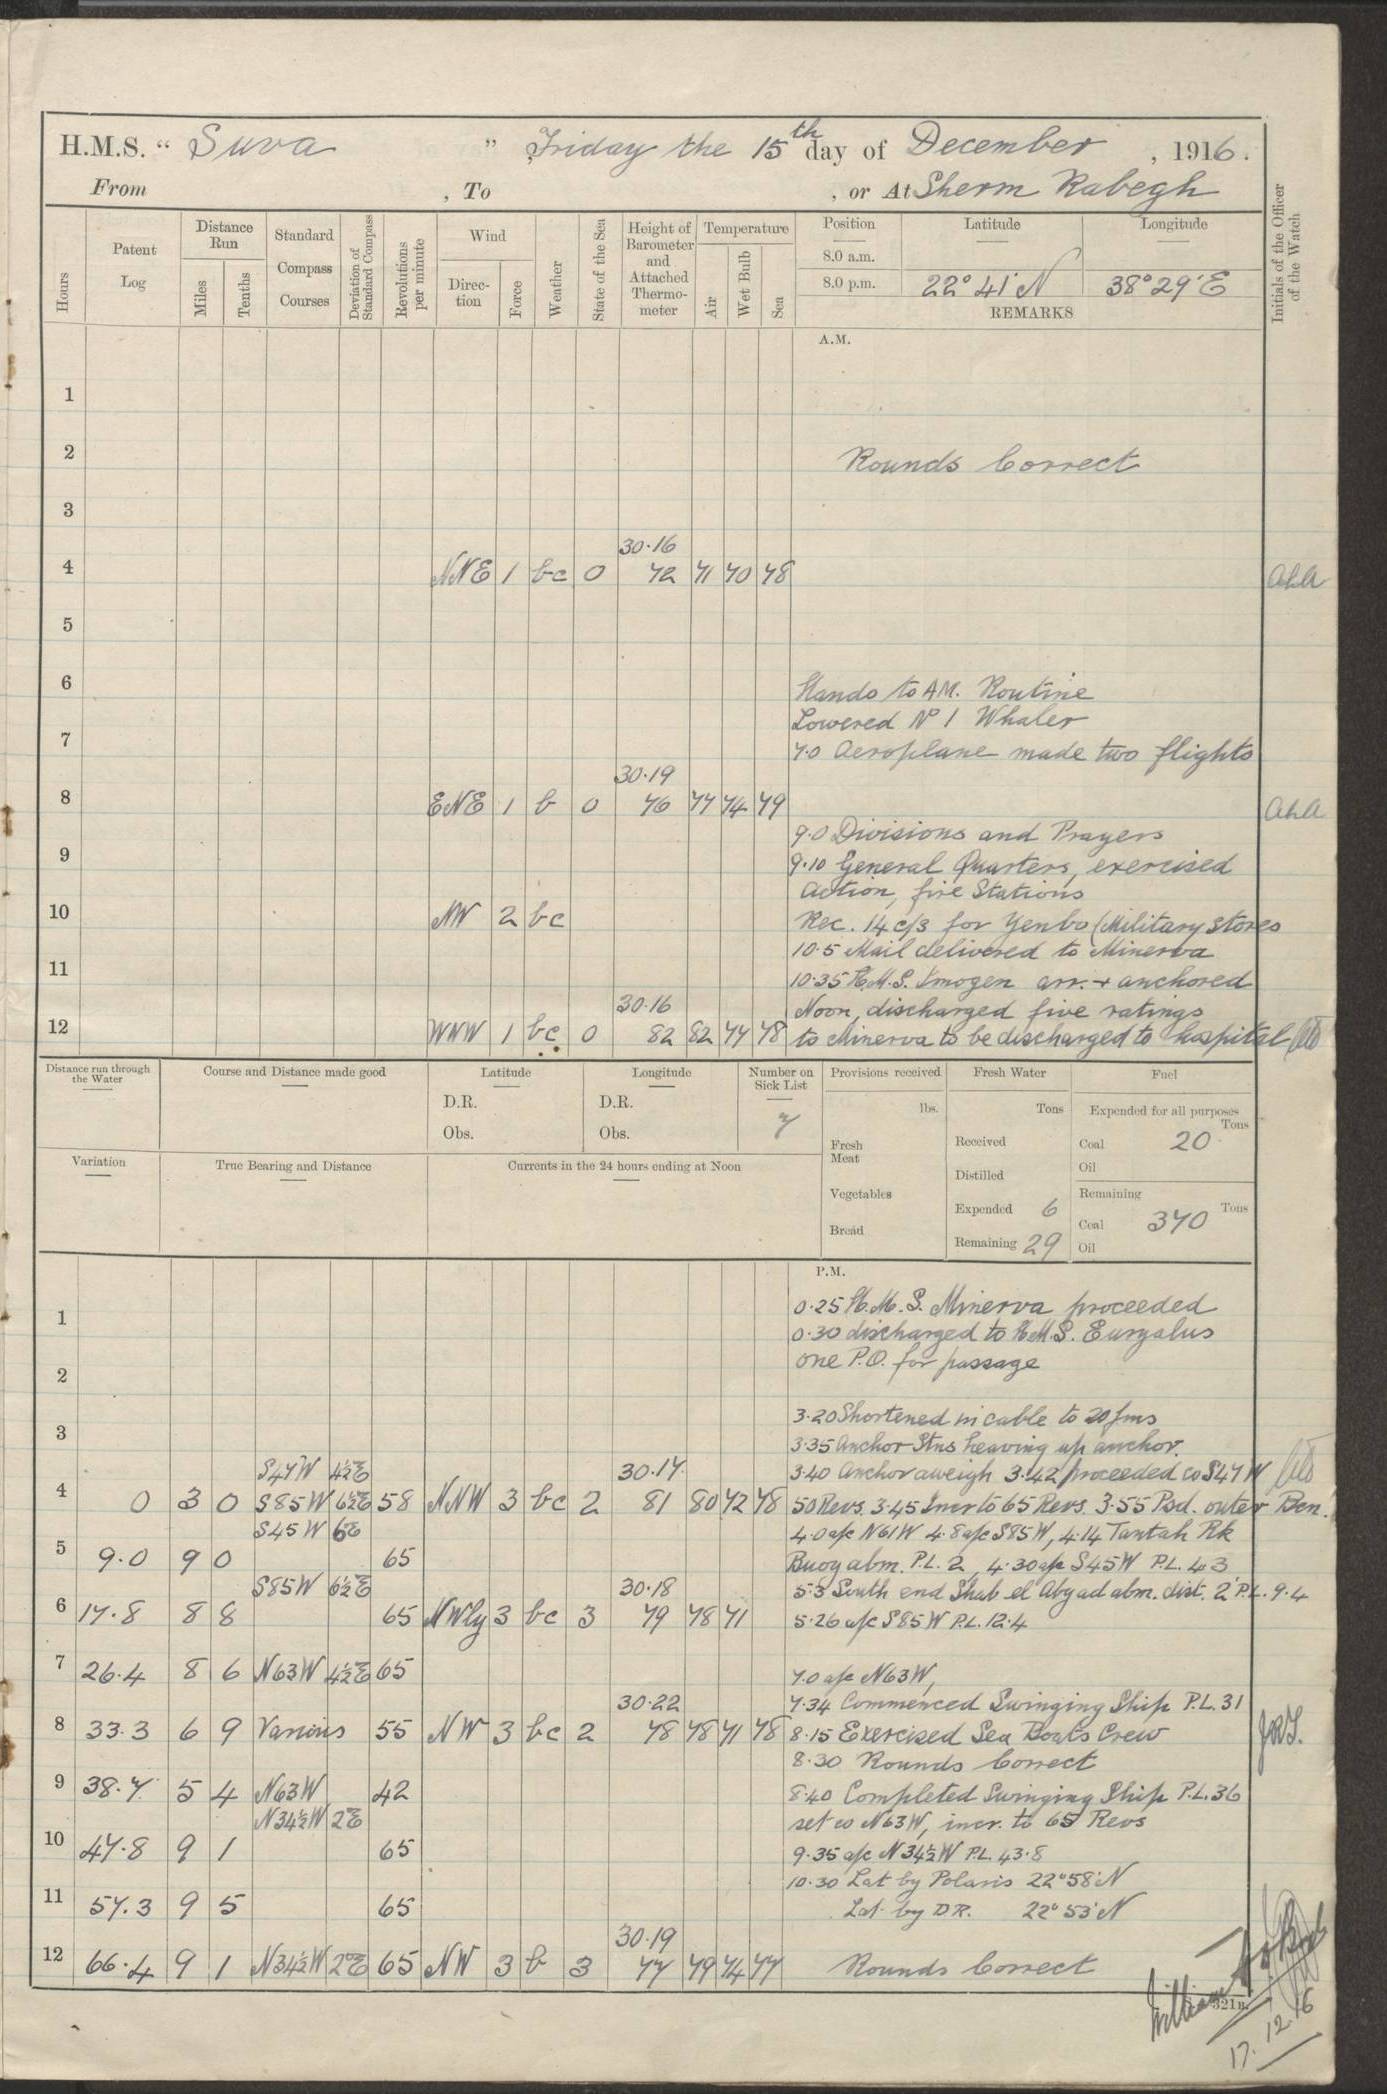 H.M.S. “ Suva ” Friday the 15th day of December , 1916.
From , To , or At Sherm Rabegh
Hours
Patent Log
Distance Run
Miles
Tenths
Standard Compass Courses
Deviation of Standard Compass
Revolutions per minute
Wind
Direction
Force
Weather
State of the Sea
Height of Barometer and Attached Thermometer
Temperature
Air
Wet Bulb
Sea
Position
Latitude
Longitude
8.0 a.m.
8.0 p.m. 22° 41' N 38° 29' E
REMARKS
Initials of the Officer of the Watch
A.M.
1
2 Rounds Correct
3
30.16
4 NNE 1 bc 0 72 71 70 78 AhA
5
6 Hands to AM. Routine
Lowered No 1 Whaler
7 7.0 Aeroplane made two flights
30.19
8 ENE 1 b 0 76 77 74 79 AhA
9.0 Divisions and Prayers
9 9.10 General Quarters, exercised
Action, fire Stations
10 NW 2 bc Rec. 14 c/s for Yenbo (Military Stores
10.5 Mail delivered to Minerva
11 10.35 H.M.S. Imogen arr. + anchored
30.16 Noon, discharged five ratings
12 WNW 1 bc 0 82 82 77 78 to Minerva to be discharged to hospital
Distance run through the Water
Course and Distance made good
Latitude
D.R.
Obs.
Longitude
D.R.
Obs.
Number on Sick List
7
Provisions received
lbs.
Fresh Meat
Vegetables
Bread
Fresh Water
Tons
Received
Distilled
Expended 6
Remaining 29
Fuel
Expended for all purposes
Tons
Coal 20
Oil
Remaining
Tons
Coal 370
Oil
Variation
True Bearing and Distance
Currents in the 24 hours ending at Noon
P.M.
0.25 H.M.S. Minerva proceeded
1 0.30 discharged to H.M.S. Euryalus
one P.O. for passage
2
3.20 Shortened in cable to 20 fms
3 3.35 Anchor Stns heaving up anchor.
S47W 4½E 30.17 3.40 Anchor aweigh 3.42 proceeded co S47W
4 0 3 0 S85W 6½E 58 NNW 3 bc 2 81 80 72 78 50 Revs. 3.45 Incr to 65 Revs. 3.55 Psd. outer Bcn.
S45W 6E 4.0 a/c N61W 4.8 a/c S85W, 4.14 Tantah Rk
5 9.0 9 0 65 Buoy abm. P.L. 2, 4.30 a/c S45W P.L. 4.3
S85W 6½E 30.18 5.3 South end Shab el Abyad abm. dist. 2' P.L. 9.4
6 17.8 8 8 65 NWly 3 bc 3 79 78 71 5.26 a/c S85W P.L. 12.4
7 26.4 8 6 N63W 4½E 65 7.0 a/c N63W,
30.22 7.34 Commenced Swinging Ship P.L. 31
8 33.3 6 9 Various 55 NW 3 bc 2 78 78 71 78 8.15 Exercised Sea Boats Crew
8.30 Rounds Correct
9 38.7 5 4 N63W 42 8.40 Completed Swinging Ship P.L. 36
N34½W 2E set co N63W, incr. to 65 Revs
10 47.8 9 1 65 9.35 a/c N34½W P.L. 43.8
10.30 Lat by Polaris 22° 58' N
11 57.3 9 5 65 Lat. by D.R. 22° 53' N
30.19
12 66.4 9 1 N34½W 2E 65 NW 3 b 3 77 79 74 77 Rounds Correct
William
321B.
17.12.16